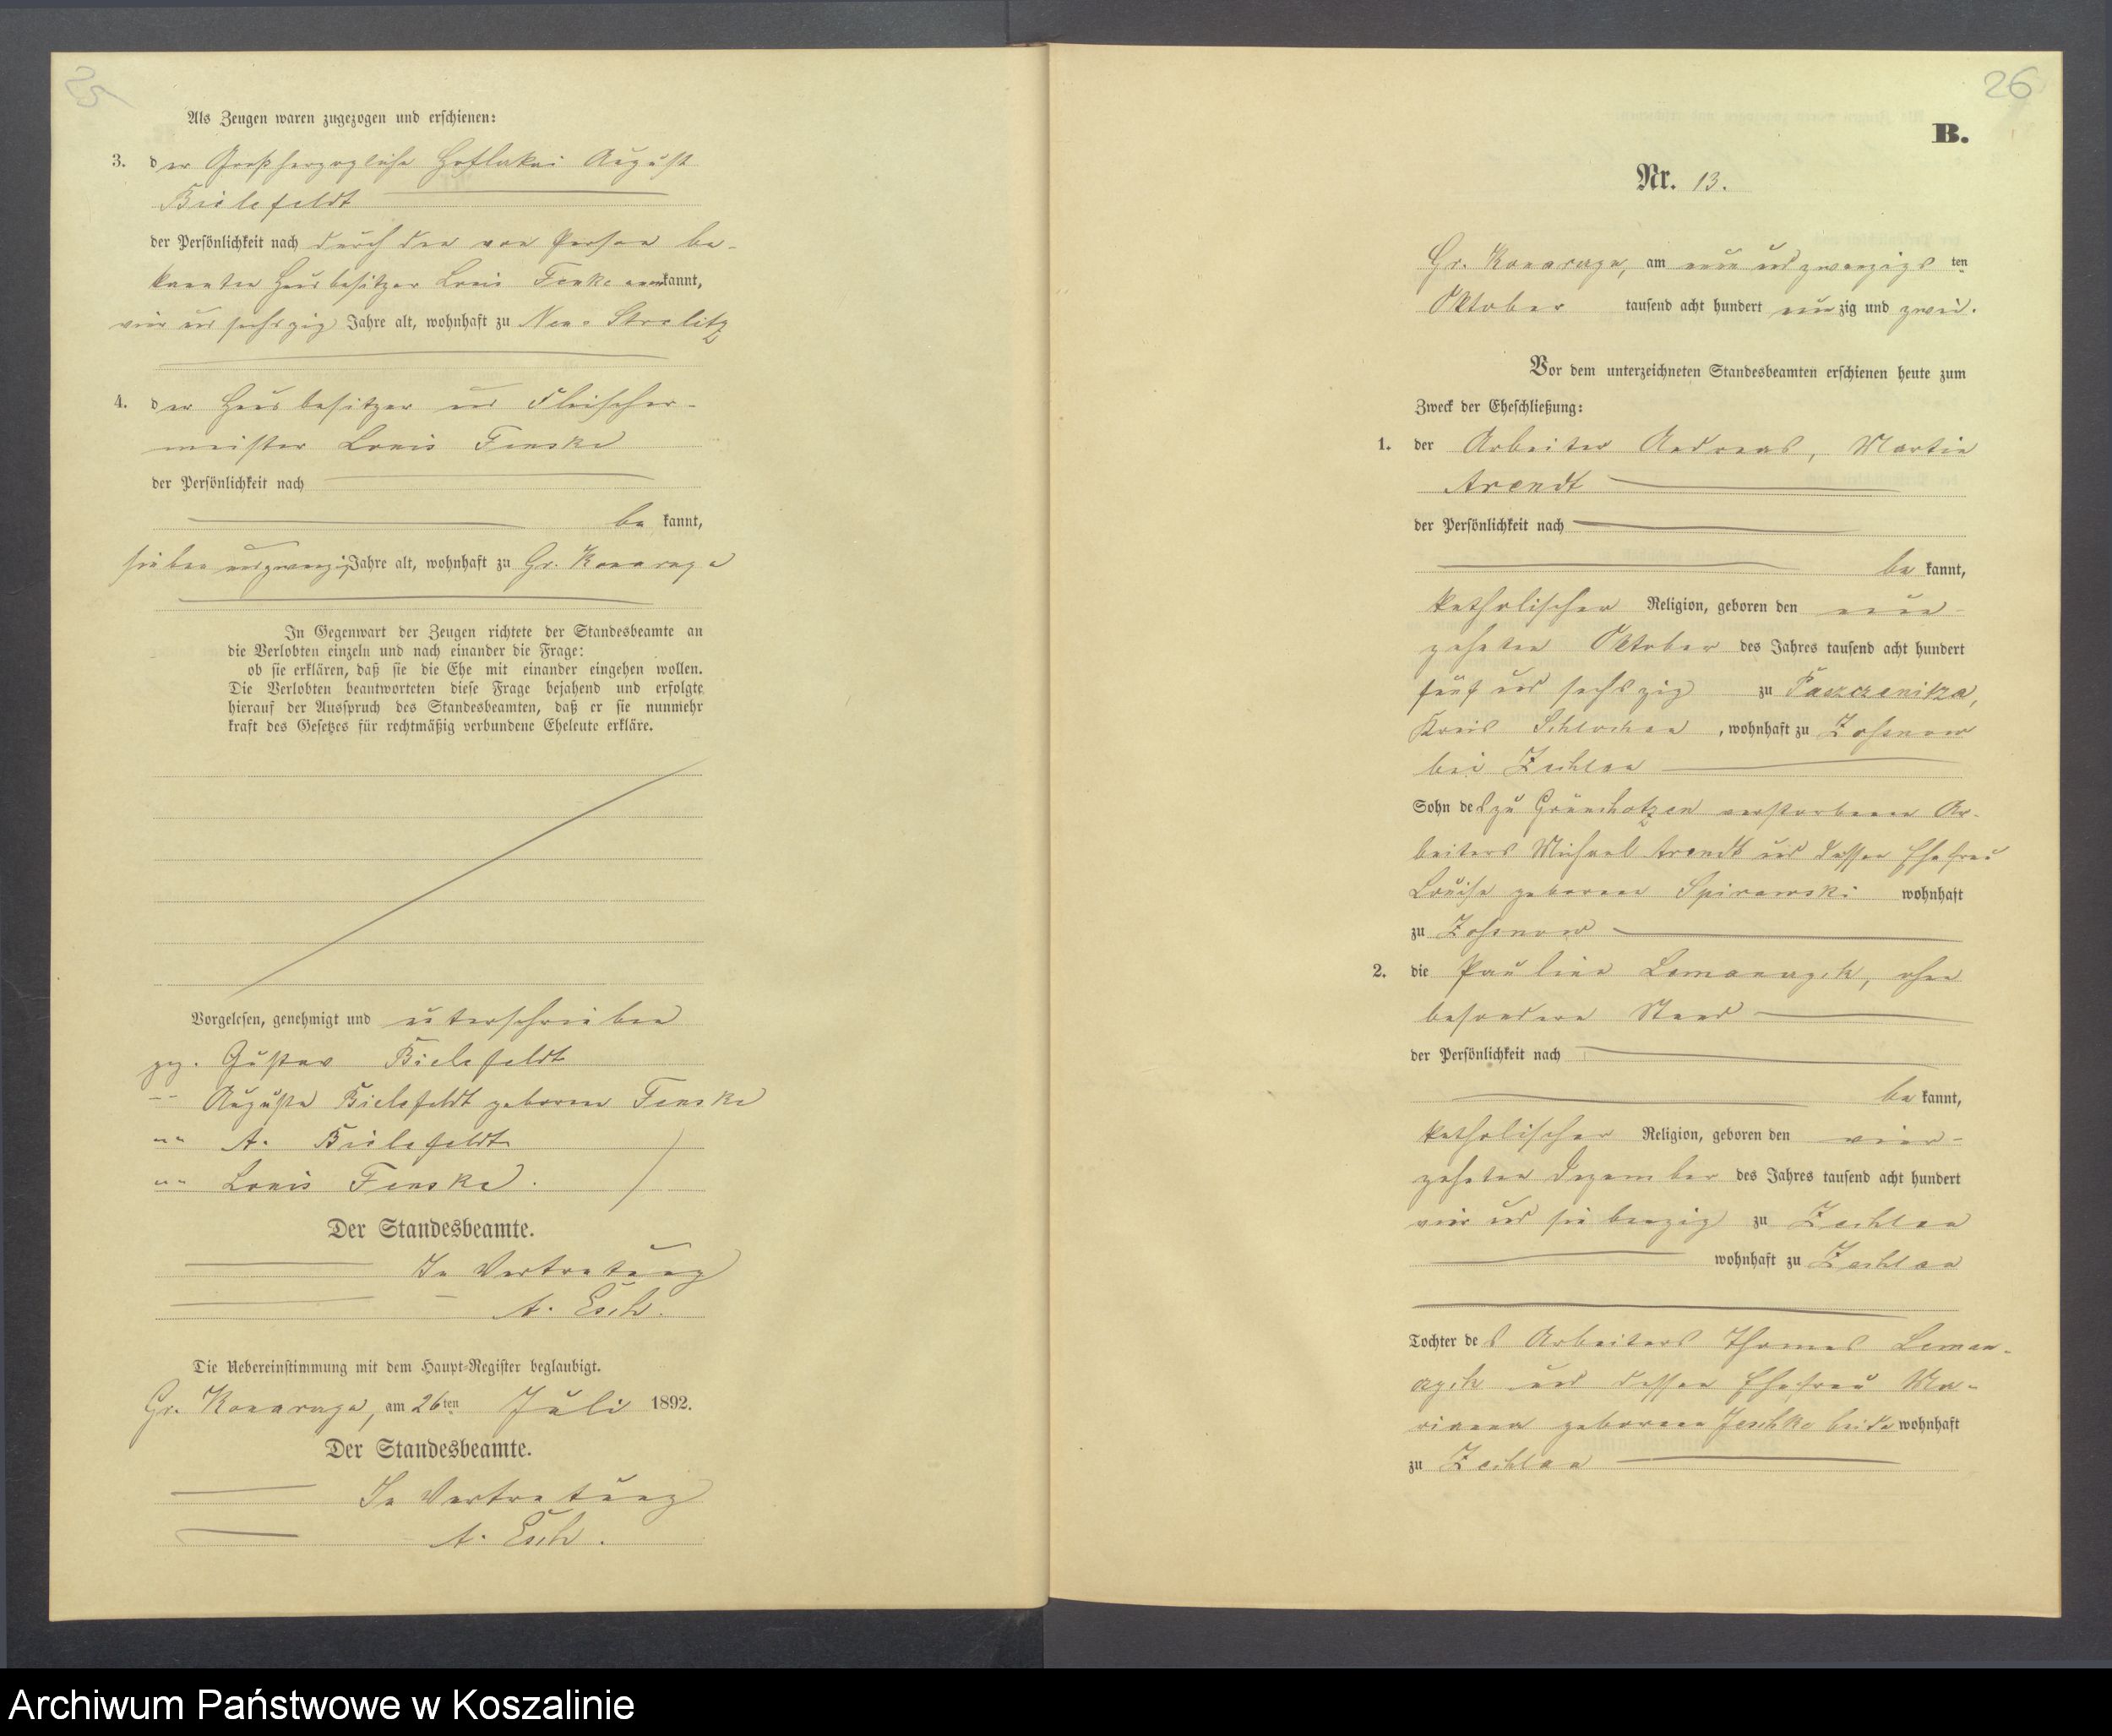 25
Als Zeugen waren zugezogen und erschienen:
3. der Großherzogliche Hoflakai August
Bielefeldt
der Persönlichkeit nach durch den von Person be-
kannten Hausbesitzer Louis Fenske anerkannt,
vier und sechszig Jahre alt, wohnhaft zu Neu-Strelitz
4. der Hausbesitzer und Fleischer-
meister Louis Fenske
der Persönlichkeit nach
be kannt,
sieben und zwanzig Jahre alt, wohnhaft zu Gr. Konarzyn
In Gegenwart der Zeugen richtete der Standesbeamte an
die Verlobten einzeln und nach einander die Frage:
ob sie erklären, daß sie die Ehe mit einander eingehen wollen.
Die Verlobten beantworteten diese Frage bejahend und erfolgte
hierauf der Ausspruch des Standesbeamten, daß er sie nunmehr
kraft des Gesetzes für rechtmäßig verbundene Eheleute erkläre.
Vorgelesen, genehmigt und unterschrieben
gez. Gustav Bielefeldt
" Auguste Bielefeldt geborene Fenske
" A. Bielefeldt
" Louis Fenske.
Der Standesbeamte.
In Vertretung
A. Esch.
Die Uebereinstimmung mit dem Haupt-Register beglaubigt.
Gr. Konarzyn, am 26ten Juli 1892.
Der Standesbeamte.
In Vertretung
A. Esch.
26
B.
Nr. 13.
Gr. Konarzyn, am neun und zwanzigsten
Oktober tausend acht hundert neunzig und zwei.
Vor dem unterzeichneten Standesbeamten erschienen heute zum
Zweck der Eheschließung:
1. der Arbeiter Andreas, Martin
Arendt
der Persönlichkeit nach
be kannt,
katholischer Religion, geboren den neun-
zehnten Oktober des Jahres tausend acht hundert
fünf und sechszig zu
Kreis Schlochau, wohnhaft zu
bei Zechlau
Sohn des zu Grünchotzen verstorbenen Ar-
beiters Michael Arendt und dessen Ehefrau
Louise geborene Spirawski wohnhaft
zu
2. die Pauline Lemanczyk, ohne
besondern Stand
der Persönlichkeit nach
be kannt,
katholischer Religion, geboren den vier-
zehnten Dezember des Jahres tausend acht hundert
vier und siebenzig zu Zechlau
wohnhaft zu Zechlau
Tochter des Arbeiters Thomas Leman-
czyk und dessen Ehefrau Ma-
rianna geborene Jeschke beide wohnhaft
zu Zechlau
Archiwum Państwowe w Koszalinie